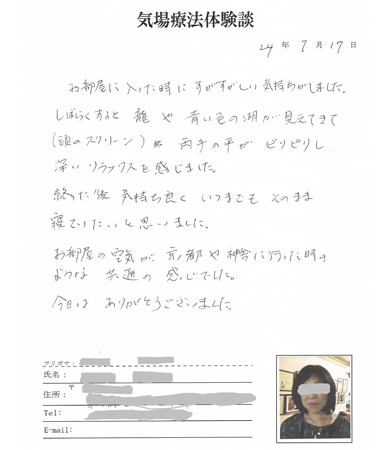 気場療法体験談
24年7月17日
お部屋に入った時にすがすがしい気持ちがしました。
しばらくすると 龍や 青い色の湖が見えてきて
(頭のスクリーン) 両手の平が ビリビリし
深い リラックスを感じました。
終った後 気持ち良く いつまでも そのまま
寝ていたいと思いました。
お部屋の空気が 京都や神社に行った時の
ような 共通の 感じでした。
今日は ありがとうございました。
フリガナ:
氏名:
〒
住所:
Tel:
E-mail: